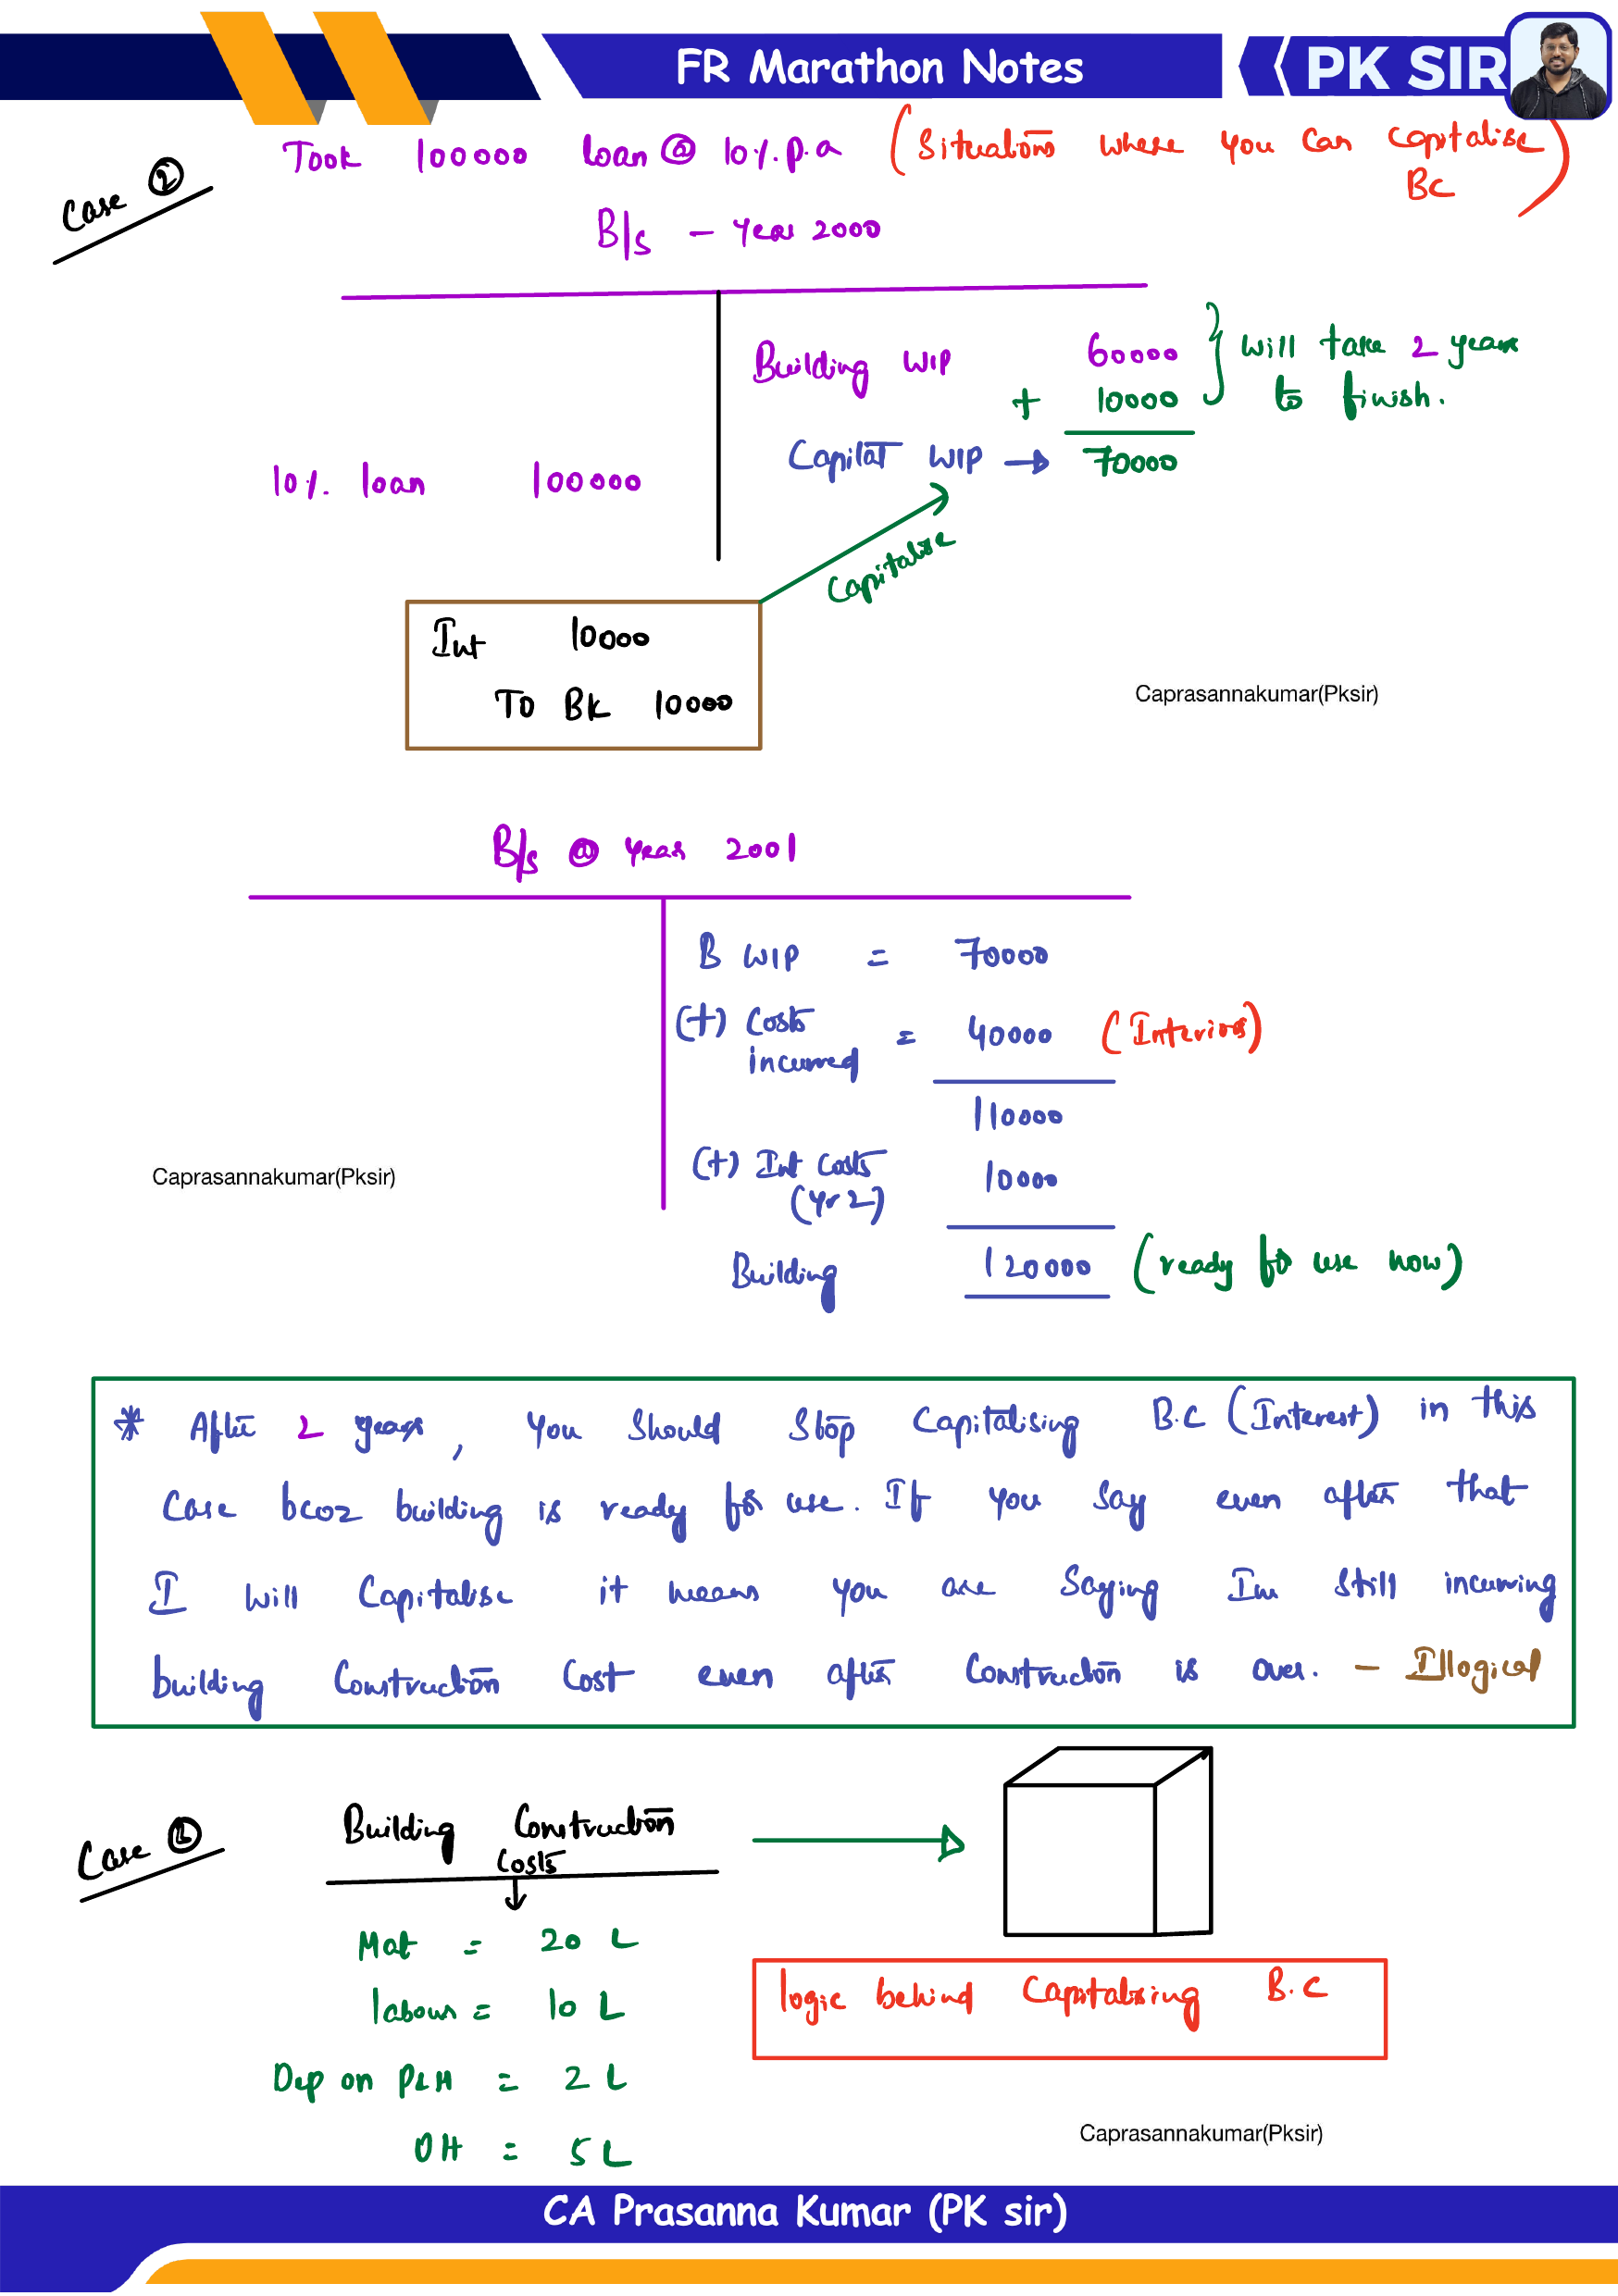 FR Marathon Notes
PK SIR
Case ②
Took 100000 loan @ 10%.p.a (Situations where you can capitalise
BC)
B/s - Year 2000
Building WIP 60000 } will take 2 years
+ 10000 to finish.
Capital WIP → 70000
10%. loan 100000
Capitalise
Int 10000
To Bk 10000
Caprasannakumar(Pksir)
B/s @ Year 2001
B WIP = 70000
(+) Costs incurred = 40000 (Interiors)
110000
(+) Int Costs 10000
(Yr 2)
Caprasannakumar(Pksir)
Building 120000 (ready for use now)
* After 2 years, you should Stop Capitalising B.C (Interest) in this
Case bcoz building is ready for use. If you say even after that
I will Capitalise it means you are saying Im still incurring
building Construction Cost even after Construction is over. - Illogical
Case
Building Construction
Costs
Mat = 20 L
labour = 10 L
Dep on P&M = 2 L
OH = 5 L
logic behind Capitalising B.C
Caprasannakumar(Pksir)
CA Prasanna Kumar (PK sir)